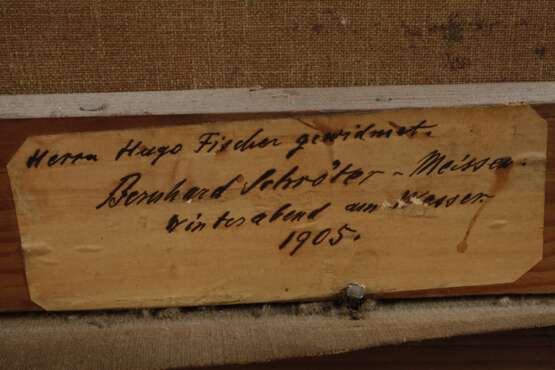 Herrn Hugo Fischer gewidmet.
Bernhard Schröter - Meissen.
Winterabend am Wasser.
1905.